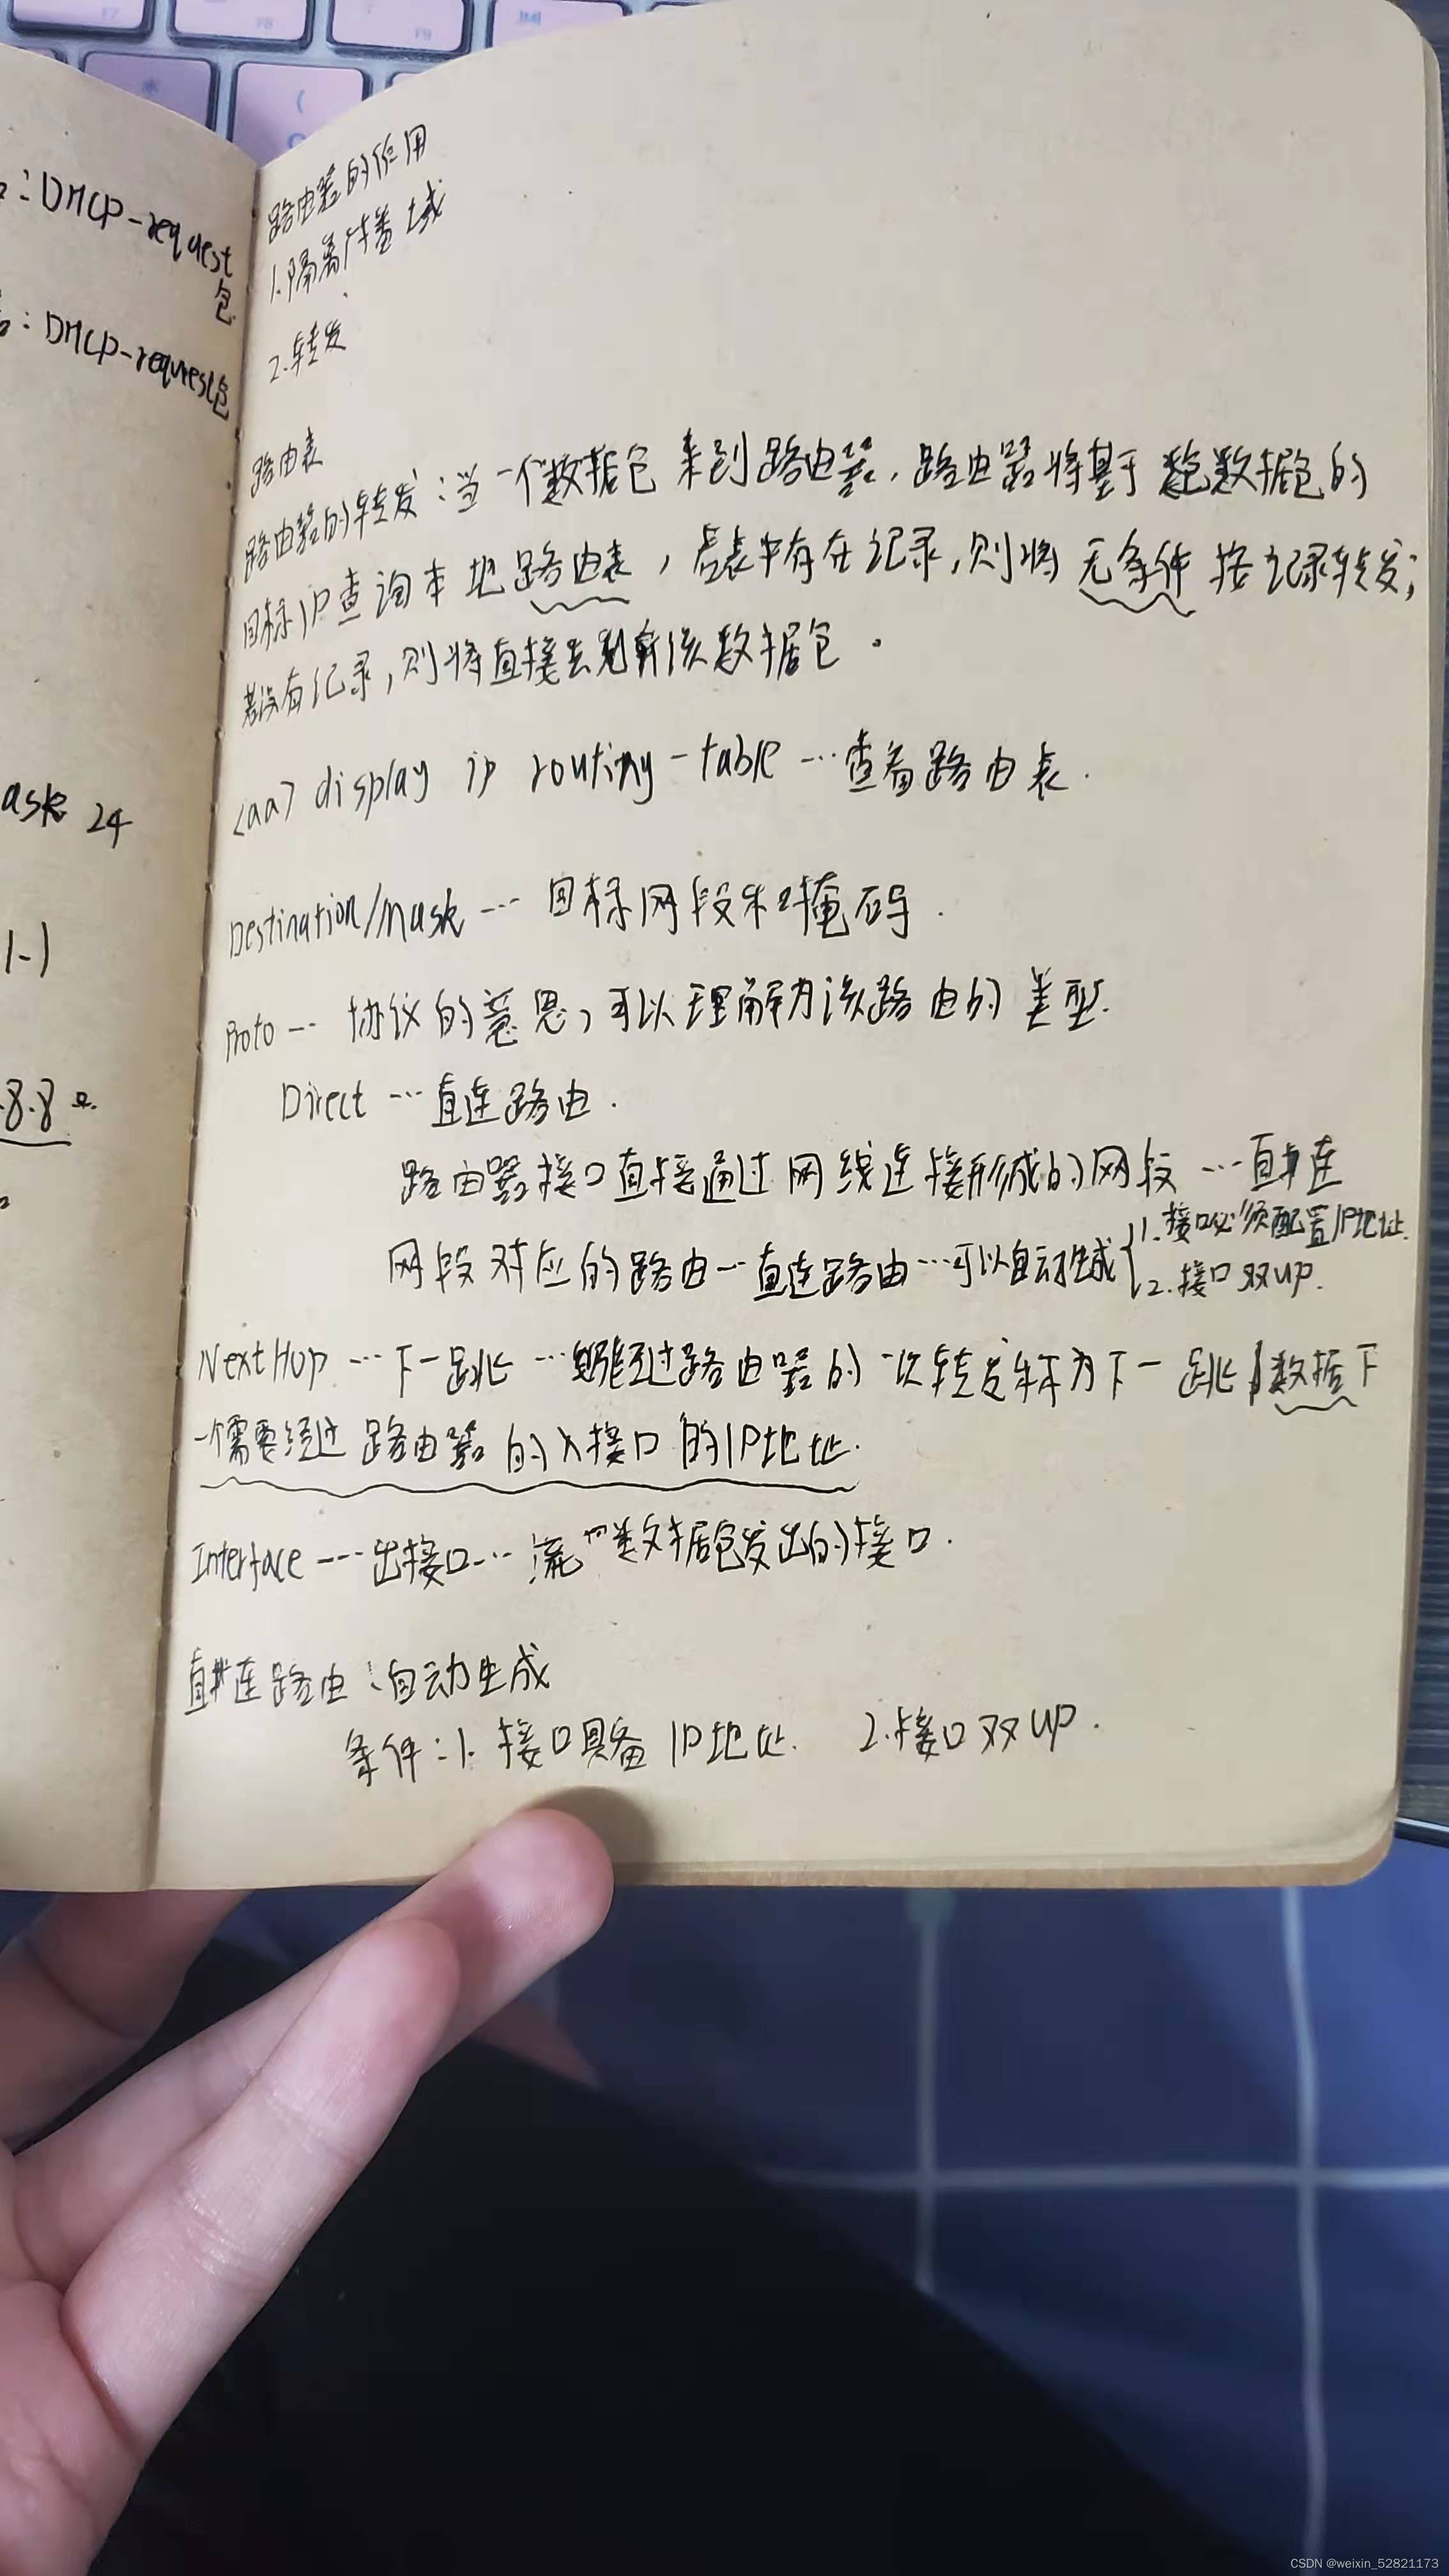 :DHCP-request
包
:DHCP-request包
ask 24
1.1
.8.8
路由器的作用
1.隔离广播域
2.转发
路由表
路由器的转发:当一个数据包来到路由器,路由器将基于数据包的
目标IP查询本地路由表,若表中存在记录,则将无条件按记录转发;
若没有记录,则将直接丢弃该数据包。
<aa> display ip routing-table ---查看路由表.
Destination/mask --- 目标网段和掩码.
Proto --- 协议的意思,可以理解为该路由的类型.
Direct --- 直连路由.
路由器接口直接通过网线连接形成的网段 --- 直连
网段对应的路由--直连路由---可以自动生成{1.接口必须配置IP地址.
2.接口双UP.
NextHop --- 下一跳 --- 经过路由器的一次转发称为下一跳 数据下
一个需要经过路由器的入接口的IP地址.
Interface --- 出接口--- 流量数据包发出的接口.
直连路由:自动生成
条件:1.接口具备IP地址. 2.接口双UP.
CSDN @weixin_52821173